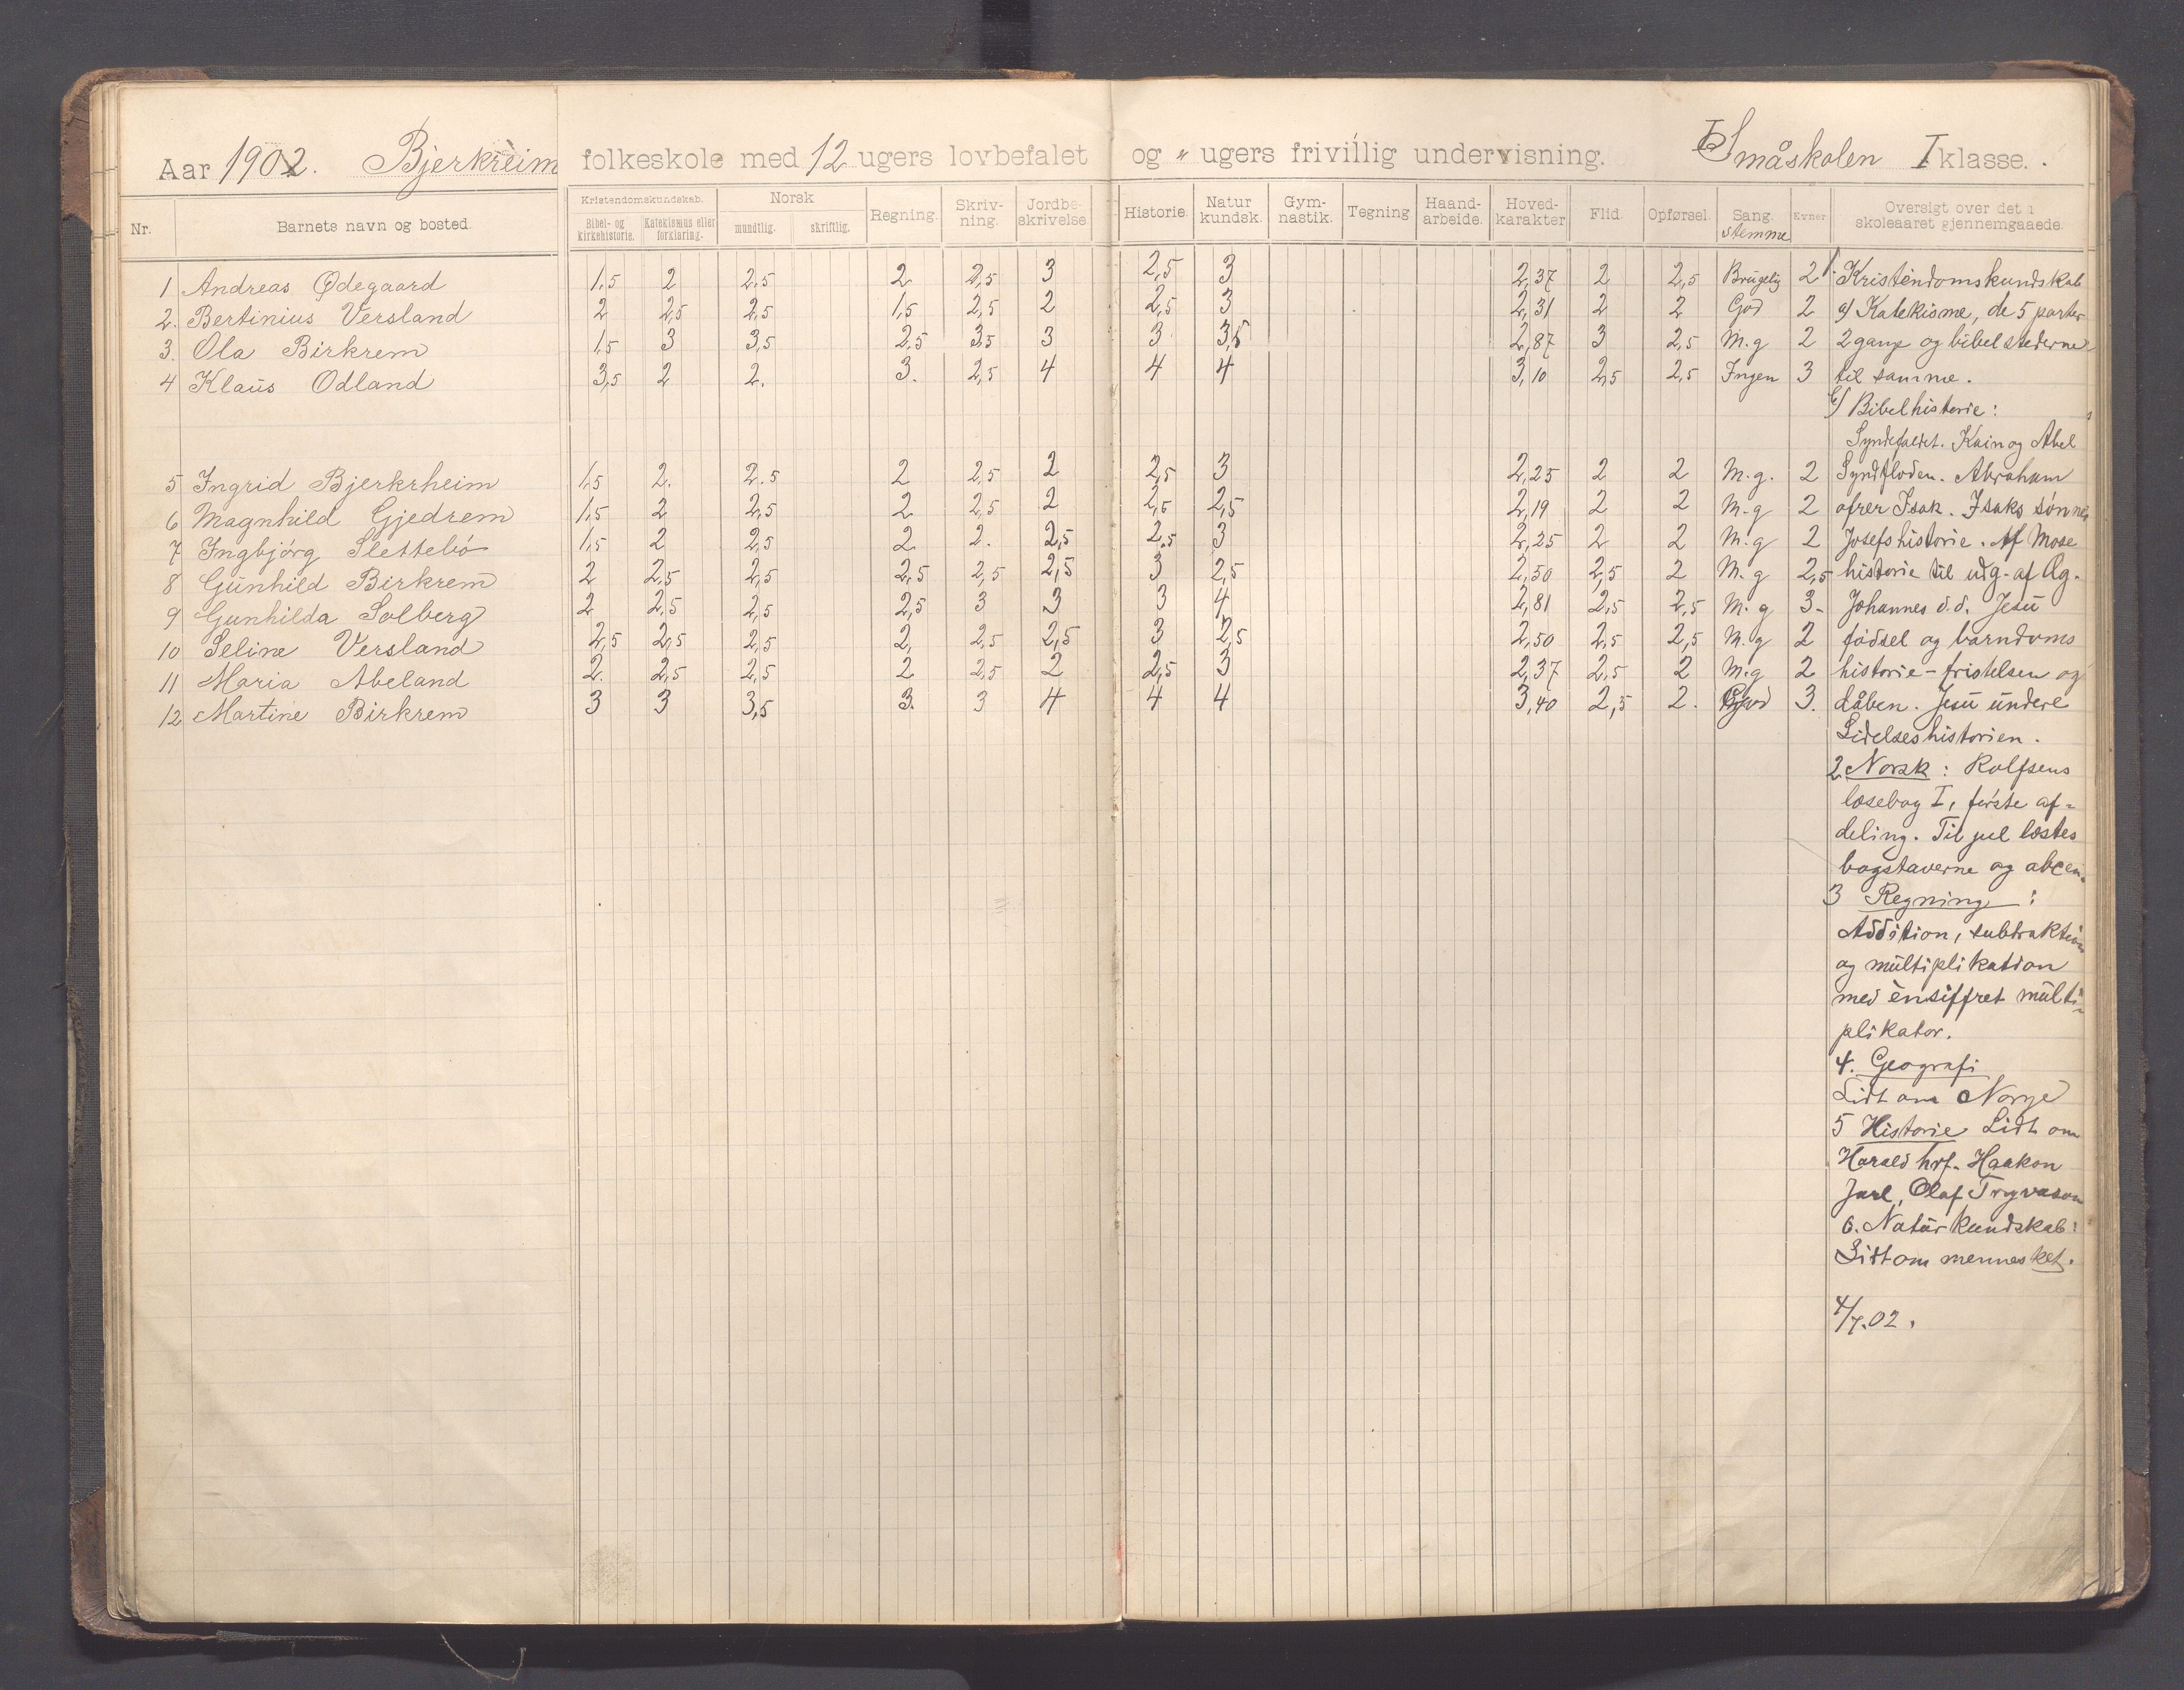 Aar 1902. Bjerkreim folkeskole med 12 ugers lovbefalet og " ugers frivillig undervisning. Småskolen I klasse.
Nr. Barnets navn og bosted. Kristendomskundskab. Bibel- og kirkehistorie. Katekismus eller forklaring. Norsk mundtlig. skriftlig. Regning. Skriv-ning. Jordbe-skrivelse Historie. Natur kundsk. Gym-nastik. Tegning Haand-arbeide. Hoved-karakter Flid. Opførsel. Sang. stemme Evner Oversigt over det i skoleaaret gjennemgaaede.
1 Andreas Ødegaard 1,5 2 2,5 2 2,5 3 2,5 3 2,37 2 2,5 Brugelig 2 1. Kristendomskundskab
2. Bertinius Versland 2 2,5 2,5 1,5 2,5 2 2,5 3 2,31 2 2 God 2 a) Katekisme, de 5 parter
3. Ola Birkrem 1,5 3 3,5 2,5 3,5 3 3 3,5 2,87 3 2,5 M.g 2 2 gange og bibelstederne
4 Klaus Odland 3,5 2 2. 3. 2,5 4 4 4 3,10 2,5 2,5 Ingen 3 til samme.
b) Bibelhistorie:
Syndefaldet. Kain og Abel
5 Ingrid Bjerkrheim 1,5 2. 2.5 2 2,5 2 2,5 3 2,25 2 2 M.g. 2 Syndfloden. Abraham
6 Magnhild Gjedrem 1,5 2 2,5 2 2,5 2 2,5 2,5 2,19 2 2 M.g 2 ofrer Isak. Isaks sønner
7 Ingbjörg Slettebö 1,5 2 2,5 2 2. 2,5 2,5 3 2,25 2 2 M.g 2 Josefs historie. Af Mose
8 Gunhild Birkrem 2 2,5 2,5 2,5 2,5 2,5 3 2,5 2,50 2,5 2 M.g 2,5 historie til udg. af Æg.
9 Gunhilda Solberg 2 2,5 2,5 2,5 3 3 3 4 2,81 2,5 2,5 M.g 3- Johannes d.d. Jesu
10 Seline Versland 2,5 2,5 2,5 2, 2,5 2,5 3 2,5 2,50 2,5 2,5 M.g 2 födsel og barndoms
11 Maria Abeland 2. 2,5 2,5 2 2,5 2 2,5 3 2,37 2,5 2 M.g 2 historie - fristelsen og
12 Martine Birkrem 3 3 3,5 3. 3 4 4 4 3,40 2,5 2. God 3. dåben. Jesu undere
Lidelseshistorien.
2 Norsk: Rolfsens
læsebog I, første af-
deling. Til jul læstes
bogstaverne og abcen.
3 Regning:
Addition, subtraktion
og multiplikation
med énsiffret multi-
plikator.
4. Geografi
Lidt om Norge
5 Historie Lidt om
Harald hrf. Haakon
Jarl, Olaf Trygvason
6. Naturkundskab:
Lidt om mennesket.
4/7.02.